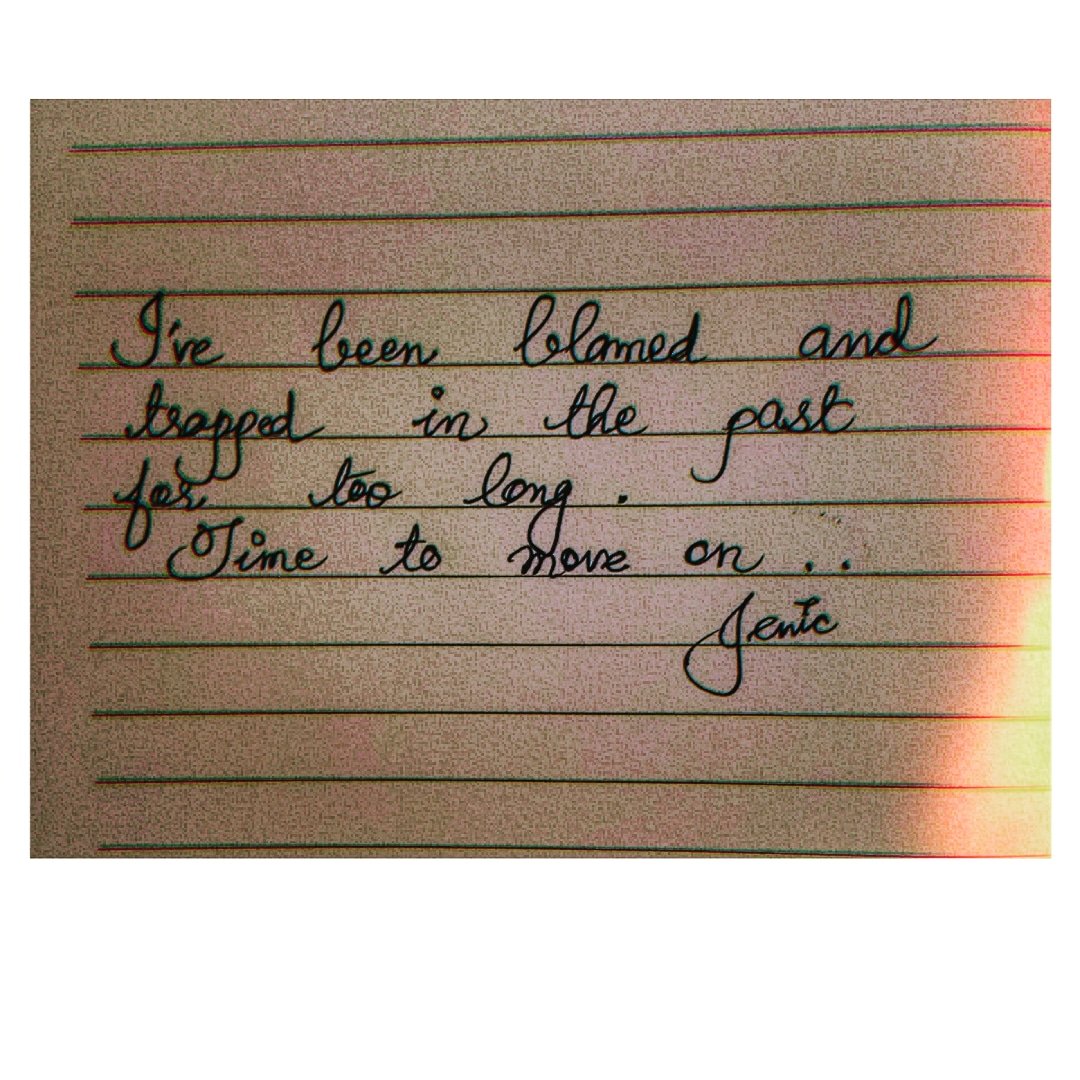 I've been blamed and
trapped in the past
for too long.
Time to move on ..
Jenic